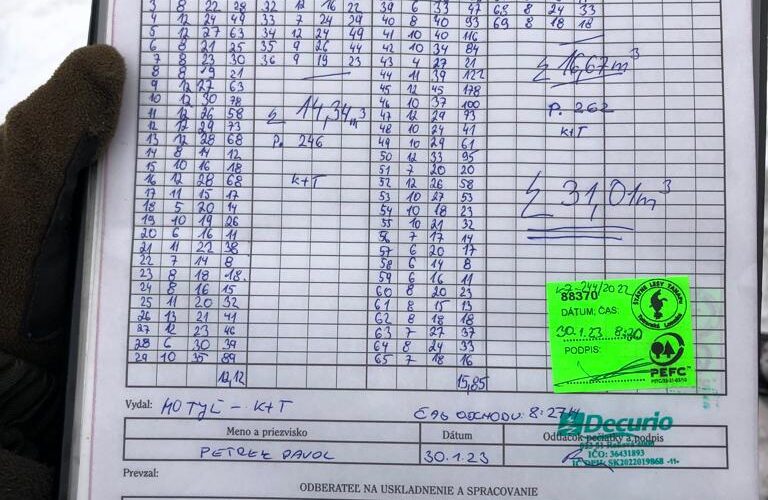 3 8 22 28 32 12 16 22 39 6 33 47 68 8 24 33
4 12 24 49 33 7 24 29 40 8 40 93 69 8 18 18
5 12 27 63 34 12 24 49 41 10 40 116
6 8 21 25 35 9 26 44 42 10 34 84
7 8 23 30 36 9 19 23 43 4 27 21
8 8 19 21 44 11 39 122
9 12 27 63 45 12 45 178
10 12 30 78 46 10 37 100
11 12 26 58 47 12 29 73
12 12 29 73 48 10 24 41
13 12 28 68 49 10 29 61
14 8 14 12 50 12 33 95
15 10 16 18 51 7 20 20
16 12 28 68 52 12 26 58
17 11 15 17 53 10 27 53
18 5 20 14 54 10 18 23
19 10 19 26 55 10 21 32
20 6 16 11 56 7 17 14
21 11 22 38 57 6 20 17
22 7 14 8 58 6 14 8
23 8 18 18 59 6 16 11
24 8 16 15 60 8 20 23
25 11 20 32 61 8 15 13
26 13 21 41 62 8 18 18
27 12 23 46 63 7 27 37
28 6 30 39 64 8 24 33
29 10 35 89 65 7 18 16
12,12 15,85
Σ 14,34 m³
P. 246
K+T
Σ 16,67 m³
P. 262
K+T
Σ 31,01 m³
88370
DÁTUM; ČAS:
30.1.23 8:20
PODPIS:
ŠTÁTNE LESY TANAPU
PEFC™
Vydal: MOTYĽ - K+T
ČAS ODCHODU: 8:27 H
Decurio
Meno a priezvisko Dátum Odtlačok pečiatky a podpis
PETREK PAVOL 30.1.23
IČO: 36431893
IČ DPH: SK2022019868 -11-
Prevzal:
ODBERATEĽ NA USKLADNENIE A SPRACOVANIE